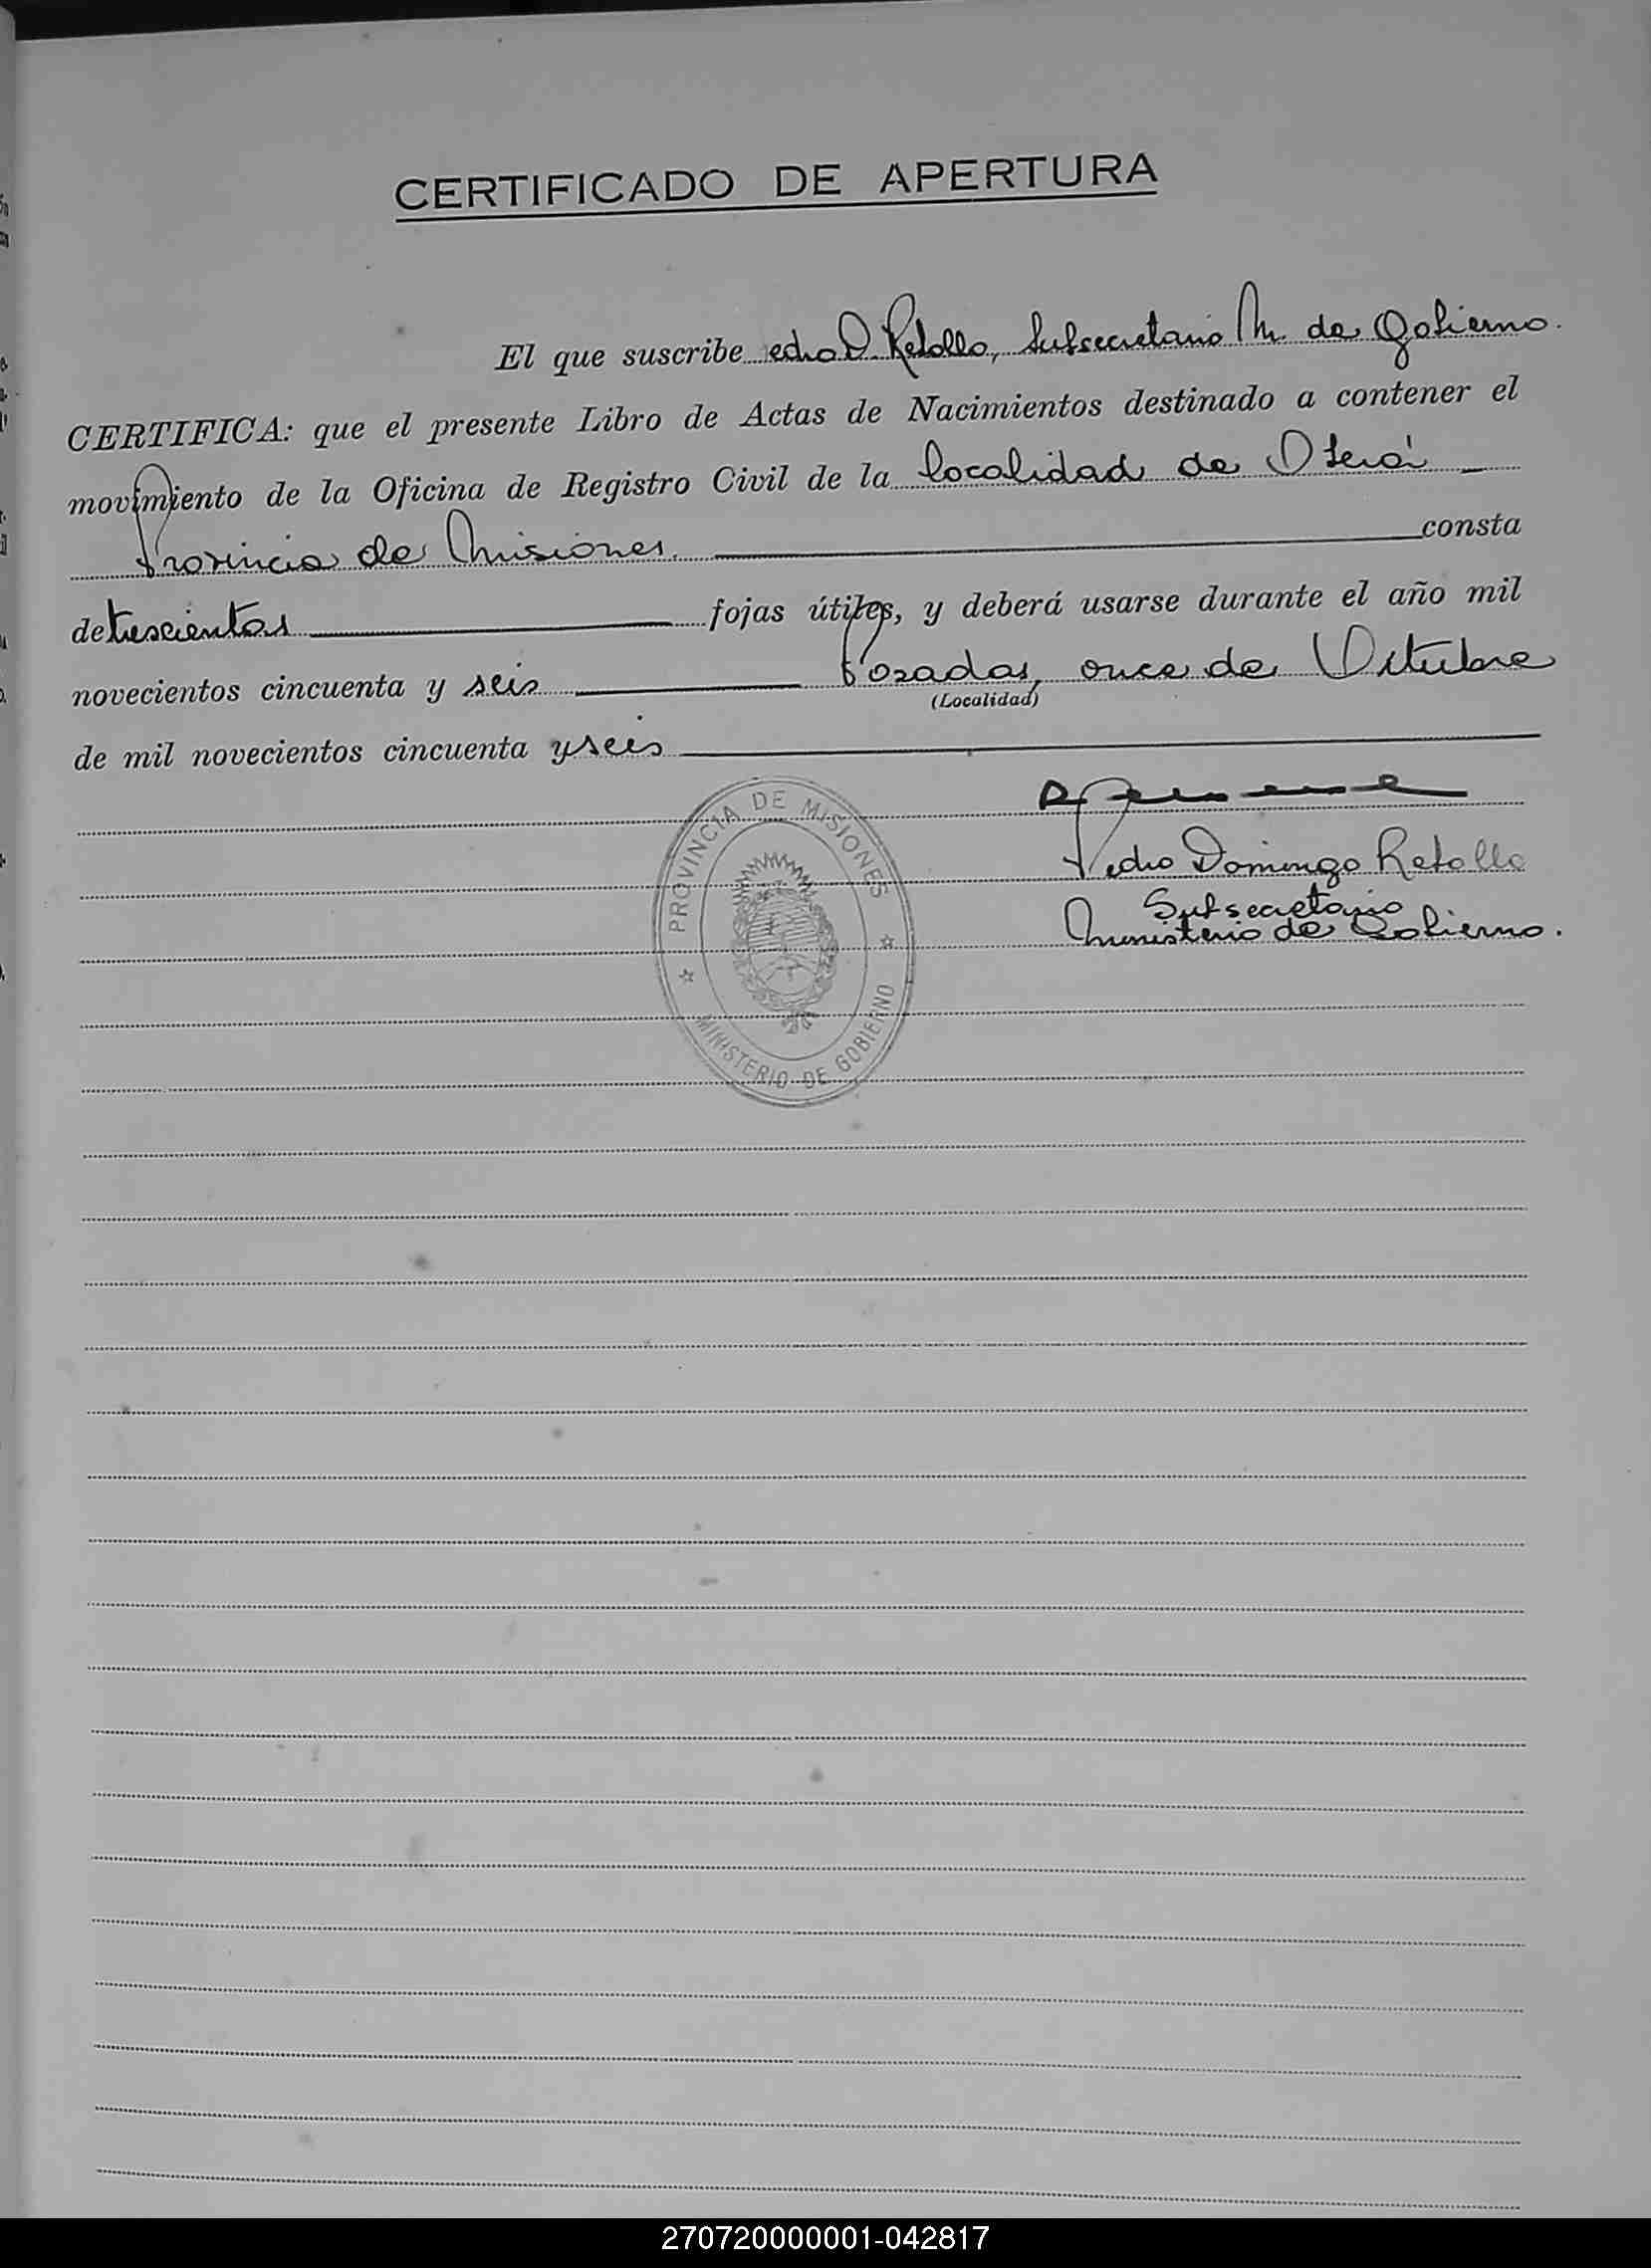 CERTIFICADO DE APERTURA
El que suscribe edro D. Rebollo, Subsecretario M. de Gobierno.
CERTIFICA: que el presente Libro de Actas de Nacimientos destinado a contener el
movimiento de la Oficina de Registro Civil de la localidad de Oberá
Provincia de Misiones. consta
de trescientas fojas útiles, y deberá usarse durante el año mil
novecientos cincuenta y seis Posadas, once de Octubre
(Localidad)
de mil novecientos cincuenta y seis
Pedro Domingo Rebollo
Subsecretario
Ministerio de Gobierno.
PROVINCIA DE MISIONES
MINISTERIO DE GOBIERNO
270720000001-042817